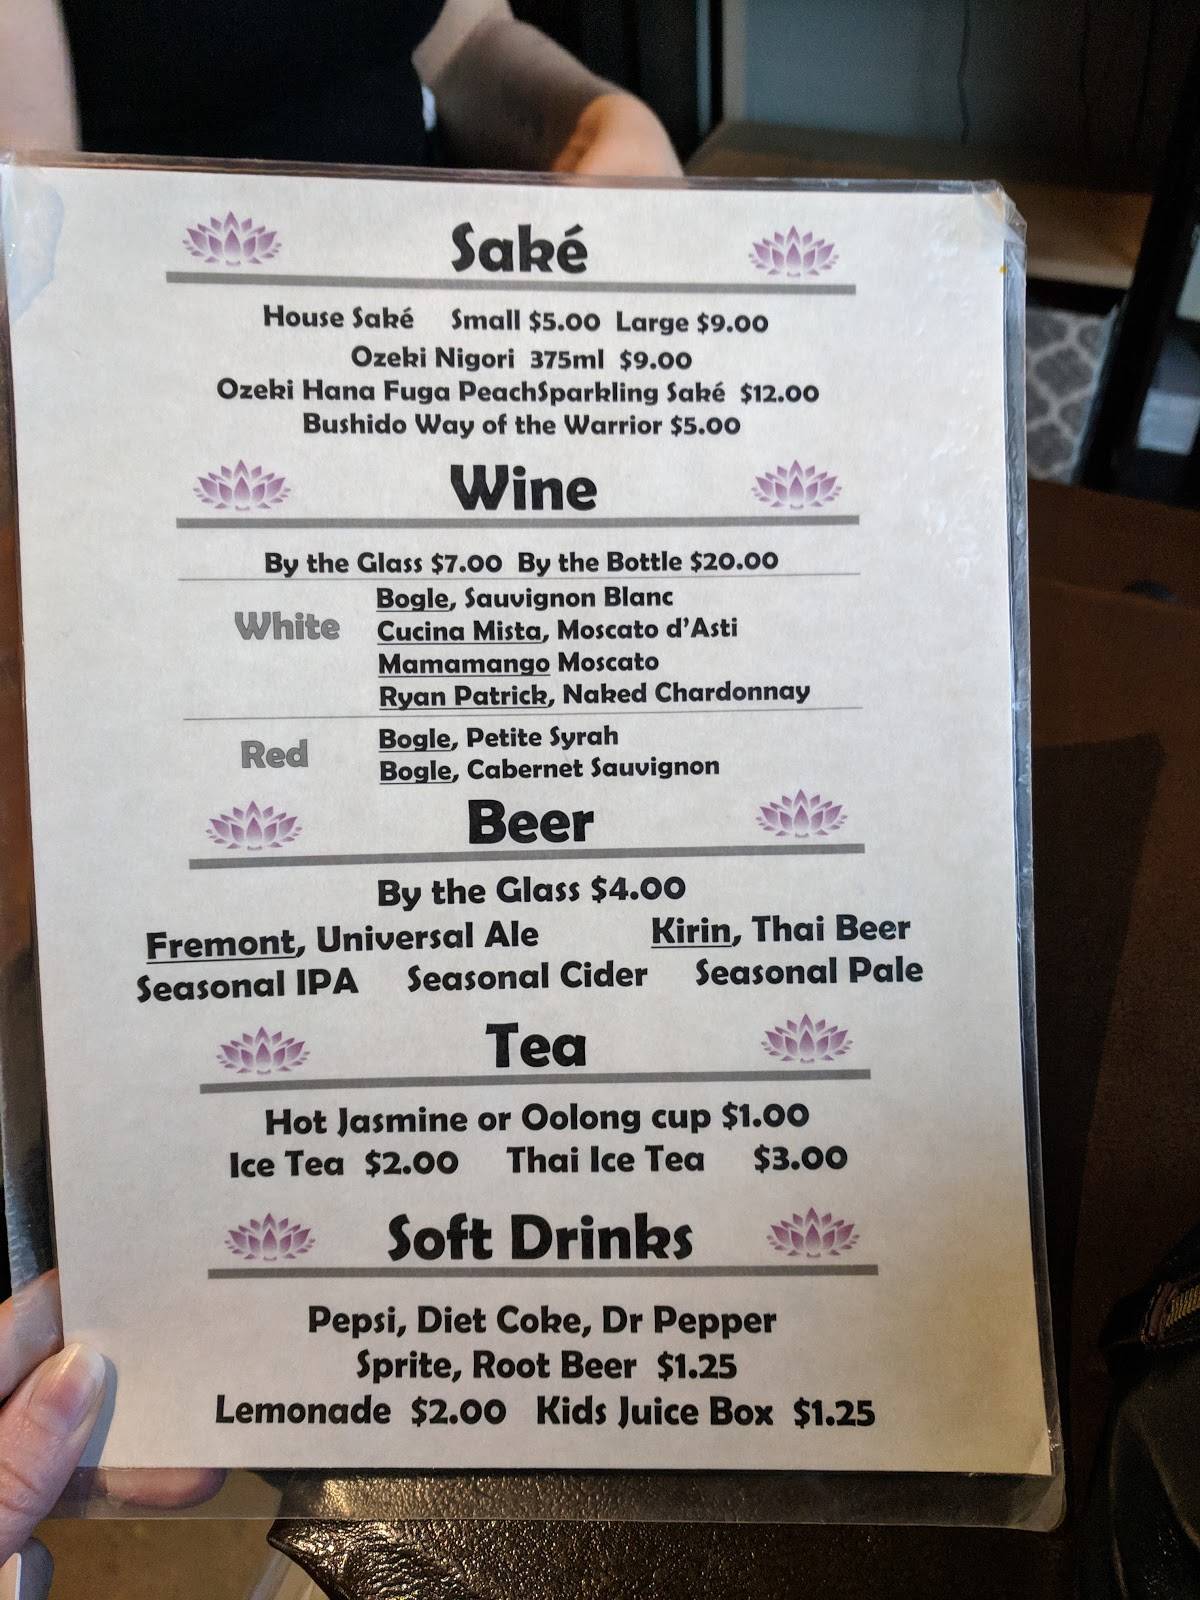 Saké
House Saké Small $5.00 Large $9.00
Ozeki Nigori 375ml $9.00
Ozeki Hana Fuga PeachSparkling Saké $12.00
Bushido Way of the Warrior $5.00
Wine
By the Glass $7.00 By the Bottle $20.00
White
Bogle, Sauvignon Blanc
Cucina Mista, Moscato d'Asti
Mamamango Moscato
Ryan Patrick, Naked Chardonnay
Red
Bogle, Petite Syrah
Bogle, Cabernet Sauvignon
Beer
By the Glass $4.00
Fremont, Universal Ale Kirin, Thai Beer
Seasonal IPA Seasonal Cider Seasonal Pale
Tea
Hot Jasmine or Oolong cup $1.00
Ice Tea $2.00 Thai Ice Tea $3.00
Soft Drinks
Pepsi, Diet Coke, Dr Pepper
Sprite, Root Beer $1.25
Lemonade $2.00 Kids Juice Box $1.25